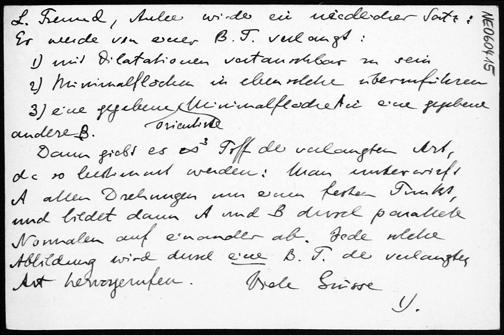 L. Freund, Anbei wieder ein niedlicher Satz:
Es werde von einer B. T. verlangt:
1) mit Dilatationen vertauschbar zu sein
2) Minimalflächen in ebensolche überzuführen
3) eine gegebene Minimalfläche A in eine gegebene
orientierte
andere B.
Dann giebt es ∞³ Tff der verlangten Art,
die so bestimmt werden: Man unterwirft
A allen Drehungen um einen festen Punkt,
und bildet dann A und B durch parallele
Normalen auf einander ab. Jede solche
Abbildung wird durch eine B. T. der verlangten
Art hervorgerufen. Viele Grüsse
NE060415